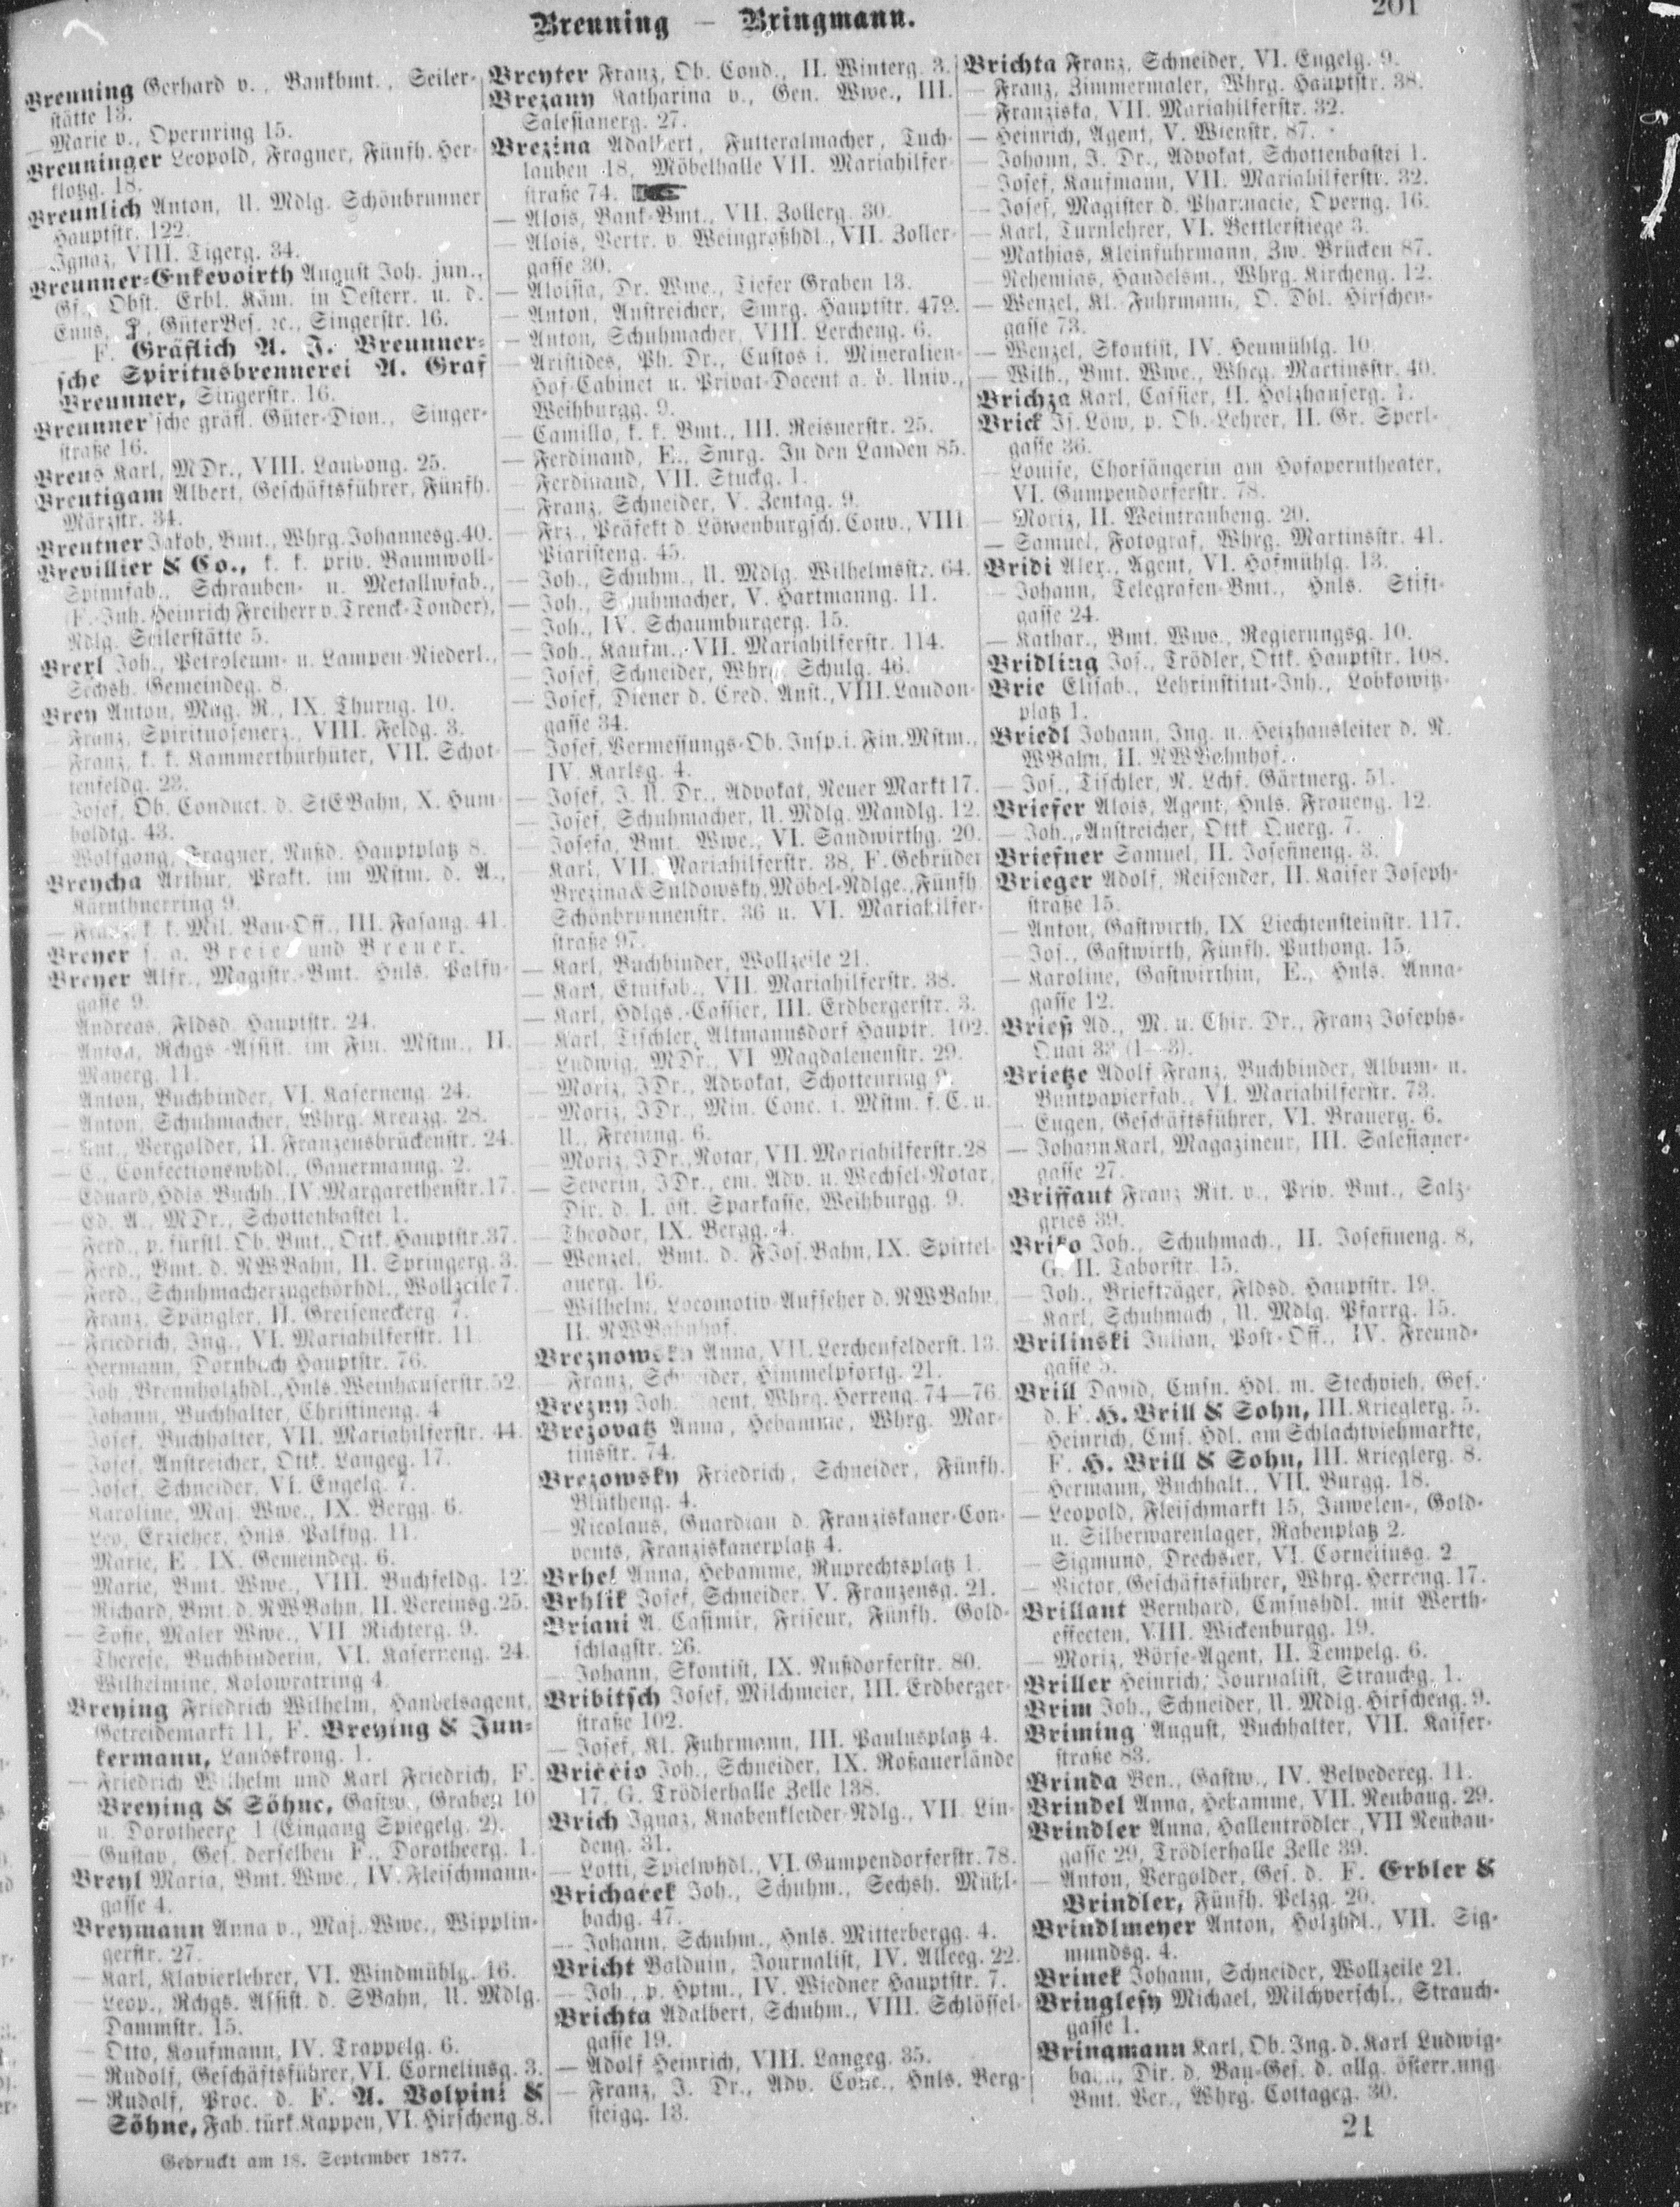 Breuning — Bringmann.
201
Breuning Gerhard v., Bankbmt., Seiler-
stätte 13.
— Marie v., Opernring 15.
Breuninger Leopold, Fragner, Fünfh. Her-
klotzg. 18.
Breunlich Anton, U. Mdlg. Schönbrunner
Hauptstr. 122.
— Ignaz, VIII. Tigerg. 34.
Breunner-Enkevoirth August Joh. jun.,
Gf., Obst. Erbl. Käm. in Oesterr. u. d.
Enns, GüterBes. ꝛc., Singerstr. 16.
— F. Gräflich A. J. Breunner-
sche Spiritusbrennerei A. Graf
Breunner, Singerstr. 16.
Breunner'sche gräfl. Güter-Dion., Singer-
straße 16.
Breus Karl, MDr., VIII. Laudong. 25.
Breutigam Albert, Geschäftsführer, Fünfh.
Märzstr. 34.
Breutner Jakob, Bmt., Whrg. Johannesg. 40.
Brevillier & Co., k. k. priv. Baumwoll-
Spinnfab., Schrauben- u. Metallwfab.,
(F. Inh. Heinrich Freiherr v. Trenck-Tonder),
Ndlg. Seilerstätte 5.
Brexl Joh., Petroleum- u. Lampen-Niederl.,
Sechsh. Gemeindeg. 8.
Brey Anton, Mag. R., IX. Thurng. 10.
— Franz, Spirituosenerz., VIII. Feldg. 3.
— Franz, k. k. Kammerthürhüter, VII. Schot-
tenfeldg. 23.
— Josef, Ob. Conduct. d. StEBahn, X. Hum-
boldtg. 43.
— Wolfgang, Fragner, Nußd. Hauptplatz 8.
Breycha Arthur, Prakt. im Mstm. d. A.,
Kärnthnerring 9.
— Franz, k. k. Mil. Bau-Off., III. Fasang. 41.
Breyer s. a. Breier und Breuer.
Breyer Alfr., Magistr.-Bmt. Hnls. Palfy-
gasse 9.
— Andreas, Fldsd. Hauptstr. 24.
— Anton, Rchgs.-Assist. im Fin. Mstm., II.
Mayerg. 11.
— Anton, Buchbinder, VI. Kaserneng. 24.
— Anton, Schuhmacher, Whrg. Kreuzg. 28.
— Ant., Vergolder, II. Franzensbrückenstr. 24.
— C., Confectionswhdl., Gauermanng. 2.
— Eduard, Hdls. Buchh., IV. Margarethenstr. 17.
— Ed. A., MDr., Schottenbastei 1.
— Ferd., p. fürstl. Ob. Bmt., Ottk. Hauptstr. 37.
— Ferd., Bmt. d. NWBahn, II. Springerg. 3.
— Ferd., Schuhmacherzugehörhdl., Wollzeile 7.
— Franz, Spängler, II. Greiseneckerg. 7.
— Friedrich, Ing., VI. Mariahilferstr. 11.
— Hermann, Dornbach Hauptstr. 76.
— Joh., Brennholzhdl., Hnls. Weinhauserstr. 52.
— Johann, Buchhalter, Christineng. 4
— Josef, Buchhalter, VII. Mariahilferstr. 44.
— Josef, Anstreicher, Ottk. Langeg. 17.
— Josef, Schneider, VI. Engelg. 7.
— Karoline, Maj. Wwe., IX. Bergg. 6.
— Leo, Erzieher, Hnls. Palfyg. 11.
— Marie, E., IX. Gemeindeg. 6.
— Marie, Bmt. Wwe., VIII. Buchfeldg. 12.
— Richard, Bmt. d. NWBahn, II. Vereinsg. 25.
— Sofie, Maler Wwe., VII. Richterg. 9.
— Therese, Buchbinderin, VI. Kaserneng. 24.
— Wilhelmine, Kolowratring 4.
Breying Friedrich Wilhelm, Handelsagent,
Getreidemarkt 11, F. Breying & Jun-
kermann, Landskrong. 1.
— Friedrich Wilhelm und Karl Friedrich, F.
Breying & Söhne, Gastw., Graben 10
u. Dorotheerg. 1 (Eingang Spiegelg. 2).
— Gustav, Ges. derselben F., Dorotheerg. 1.
Breyl Maria, Bmt. Wwe., IV. Fleischmann-
gasse 4.
Breymann Anna v., Maj. Wwe., Wipplin-
gerstr. 27.
— Karl, Klavierlehrer, VI. Windmühlg. 16.
— Leop., Rchgs. Assist. d. SBahn, U. Mdlg.
Dammstr. 15.
— Otto, Kaufmann, IV. Trappelg. 6.
— Rudolf, Geschäftsführer, VI. Corneliusg. 3.
— Rudolf, Proc. d. F. A. Volpini &
Söhne, Fab. türk. Kappen, VI. Hirscheng. 8.
Gedruckt am 18. September 1877.
Breyter Franz, Ob. Cond., II. Winterg. 3.
Brezany Katharina v., Gen. Wwe., III.
Salesianerg. 27.
Brezina Adalbert, Futteralmacher, Tuch-
lauben 18, Möbelhalle VII. Mariahilfer-
straße 74.
— Alois, Bank-Bmt., VII. Zollerg. 30.
— Alois, Vertr. v. Weingroßhdl., VII. Zoller-
gasse 30.
— Aloisia, Dr. Wwe., Tiefer Graben 13.
— Anton, Anstreicher, Smrg. Hauptstr. 479.
— Anton, Schuhmacher, VIII. Lercheng. 6.
— Aristides, Ph. Dr., Custos i. Mineralien-
Hof-Cabinet u. Privat-Docent a. d. Univ.,
Weihburgg. 9.
— Camillo, k. k. Bmt., III. Reisnerstr. 25.
— Ferdinand, E., Smrg. In den Landen 85.
— Ferdinand, VII. Stuckg. 1.
— Franz, Schneider, V. Zentag. 9.
— Frz., Präfekt d. Löwenburgsch. Conv., VIII.
Piaristeng. 45.
— Joh., Schuhm., U. Mdlg. Wilhelmsstr. 64.
— Joh., Schuhmacher, V. Hartmanng. 11.
— Joh., IV. Schaumburgerg. 15.
— Joh., Kaufm., VII. Mariahilferstr. 114.
— Josef, Schneider, Whrg. Schulg. 46.
— Josef, Diener d. Cred. Anst., VIII. Laudon-
gasse 34.
— Josef, Vermessungs-Ob. Insp. i. Fin. Mstm.,
IV. Karlsg. 4.
— Josef, J. U. Dr., Advokat, Neuer Markt 17.
— Josef, Schuhmacher, U. Mdlg. Mandlg. 12.
— Josefa, Bmt. Wwe., VI. Sandwirthg. 20.
— Karl, VII. Mariahilferstr. 38, F. Gebrüder
Brezina & Suldowsky, Möbel-Ndlge., Fünfh.
Schönbrunnenstr. 36 u. VI. Mariahilfer-
straße 97.
— Karl, Buchbinder, Wollzeile 21.
— Karl, Etuifab., VII. Mariahilferstr. 38.
— Karl, Hdlgs.-Cassier, III. Erdbergerstr. 3.
— Karl, Tischler, Altmannsdorf Hauptr. 102.
— Ludwig, MDr., VI. Magdalenenstr. 29.
— Moriz, JDr., Advokat, Schottenring 9.
— Moriz, JDr., Min. Conc. i. Mstm. f. C. u.
U., Freiung. 6.
— Moriz, JDr., Notar, VII. Mariahilferstr. 28
— Severin, JDr., em. Adv. u. Wechsel-Notar,
Dir. d. I. öst. Sparkasse, Weihburgg. 9.
— Theodor, IX. Bergg. 4.
— Wenzel, Bmt. d. FJos. Bahn, IX. Spittel-
auerg. 16.
— Wilhelm, Locomotiv-Aufseher d. NWBahn,
II. NWBahnhof.
Breznowsky Anna, VII. Lerchenfelderst. 13.
— Franz, Schneider, Himmelpfortg. 21.
Brezny Joh., Agent, Whrg. Herreng. 74—76.
Brezovatz Anna, Hebamme, Whrg. Mar-
tinsstr. 74.
Brezowsky Friedrich, Schneider, Fünfh.
Blütheng. 4.
— Nicolaus, Guardian d. Franziskaner-Con-
vents, Franziskanerplatz 4.
Brhel Anna, Hebamme, Ruprechtsplatz 1.
Brhlik Josef, Schneider, V. Franzensg. 21.
Briani A. Casimir, Friseur, Fünfh. Gold-
schlagstr. 26.
— Johann, Skontist, IX. Nußdorferstr. 80.
Bribitsch Josef, Milchmeier, III. Erdberger-
straße 102.
— Josef, Kl. Fuhrmann, III. Paulusplatz 4.
Briccio Joh., Schneider, IX. Roßauerlände
17, G. Trödlerhalle Zelle 138.
Brich Ignaz, Knabenkleider-Ndlg., VII. Lin-
deng. 31.
— Lotti, Spielwhdl., VI. Gumpendorferstr. 78.
Brichacek Joh., Schuhm., Sechsh. Mühl-
bachg. 47.
— Johann, Schuhm., Hnls. Mitterbergg. 4.
Bricht Balduin, Journalist, IV. Alleeg. 22.
— Joh., p. Hptm., IV. Wiedner Hauptstr. 7.
Brichta Adalbert, Schuhm., VIII. Schlössel-
gasse 19.
— Adolf Heinrich, VIII. Langeg. 35.
— Franz, J. Dr., Adv. Conc., Hnls. Berg-
steigg. 13.
Brichta Franz, Schneider, VI. Engelg. 9.
— Franz, Zimmermaler, Whrg. Hauptstr. 38.
— Franziska, VII. Mariahilferstr. 32.
— Heinrich, Agent, V. Wienstr. 87.
— Johann, J. Dr., Advokat, Schottenbastei 1.
— Josef, Kaufmann, VII. Mariahilferstr. 32.
— Josef, Magister d. Pharmacie, Operng. 16.
— Karl, Turnlehrer, VI. Bettlerstiege 3.
— Mathias, Kleinfuhrmann, Zw. Brücken 87.
— Nehemias, Handelsm., Whrg. Kircheng. 12.
— Wenzel, Kl. Fuhrmann, O. Dbl. Hirschen-
gasse 73.
— Wenzel, Skontist, IV. Heumühlg. 10.
— Wilh., Bmt. Wwe., Whrg. Martinsstr. 40.
Brichza Karl, Cassier, II. Holzhauserg. 1.
Brick Is. Löw, p. Ob.-Lehrer, II. Gr. Sperl-
gasse 36.
— Louise, Chorsängerin am Hofoperntheater,
VI. Gumpendorferstr. 78.
— Moriz, II. Weintraubeng. 20.
— Samuel, Fotograf, Whrg. Martinsstr. 41.
Bridi Alex., Agent, VI. Hofmühlg. 13.
— Johann, Telegrafen-Bmt., Hnls. Stift-
gasse 24.
— Kathar., Bmt. Wwe., Regierungsg. 10.
Bridling Jos., Trödler, Ottk. Hauptstr. 108.
Brie Elisab., Lehrinstitut-Inh., Lobkowitz-
platz 1.
Briedl Johann, Ing. u. Heizhausleiter d. N.
WBahn, II. NWBahnhof.
— Jos., Tischler, N. Lchf. Gärtnerg. 51.
Briefer Alois, Agent, Hnls. Fraueng. 12.
— Joh., Anstreicher, Ottk. Querg. 7.
Briefner Samuel, II. Josefineng. 3.
Brieger Adolf, Reisender, II. Kaiser Joseph-
straße 15.
— Anton, Gastwirth, IX. Liechtensteinstr. 117.
— Jos., Gastwirth, Fünfh. Puthong. 15.
— Karoline, Gastwirthin, E., Hnls. Anna-
gasse 12.
Brieß Ad., M. u. Chir. Dr., Franz Josephs-
Quai 33 (1—3).
Brietze Adolf Franz, Buchbinder, Album- u.
Buntpapierfab., VI. Mariahilferstr. 73.
— Eugen, Geschäftsführer, VI. Brauerg. 6.
— Johann Karl, Magazineur, III. Salesianer-
gasse 27.
Briffaut Franz Rit. v., Priv. Bmt., Salz-
gries 39.
Briko Joh., Schuhmach., II. Josefineng. 8,
G. II. Taborstr. 15.
— Joh., Briefträger, Fldsd. Hauptstr. 19.
— Karl, Schuhmach., U. Mdlg. Pfarrg. 15.
Brilinski Julian, Post-Off., IV. Freund-
gasse 5.
Brill David, Cmsn. Hdl. m. Stechvieh, Ges.
d. F. H. Brill & Sohn, III. Krieglerg. 5.
— Heinrich, Cms. Hdl. am Schlachtviehmarkte,
F. H. Brill & Sohn, III. Krieglerg. 8.
— Hermann, Buchhalt., VII. Burgg. 18.
— Leopold, Fleischmarkt 15, Juwelen-, Gold-
u. Silberwarenlager, Rabenplatz 2.
— Sigmund, Drechsler, VI. Corneliusg. 2.
— Victor, Geschäftsführer, Whrg. Herreng. 17.
Brillant Bernhard, Cmsnshdl. mit Werth-
effecten, VIII. Wickenburgg. 19.
— Moriz, Börse-Agent, II. Tempelg. 6.
Briller Heinrich, Journalist, Strauchg. 1.
Brim Joh., Schneider, U. Mdlg. Hirscheng. 9.
Briming August, Buchhalter, VII. Kaiser-
straße 83.
Brinda Ven., Gastw., IV. Belvedereg. 11.
Brindel Anna, Hebamme, VII. Neubaug. 29.
Brindler Anna, Hallentrödler, VII Neubau-
gasse 29, Trödlerhalle Zelle 39.
— Anton, Vergolder, Ges. d. F. Erbler &
Brindler, Fünfh. Pelzg. 20.
Brindlmeyer Anton, Holzhdl., VII. Sig-
mundsg. 4.
Brinek Johann, Schneider, Wollzeile 21.
Bringlesy Michael, Milchverschl., Strauch-
gasse 1.
Bringmann Karl, Ob. Ing. d. Karl Ludwig-
bahn, Dir. d. Bau-Ges. d. allg. österr. ung.
Bmt. Ver., Whrg. Cottageg. 30.
21